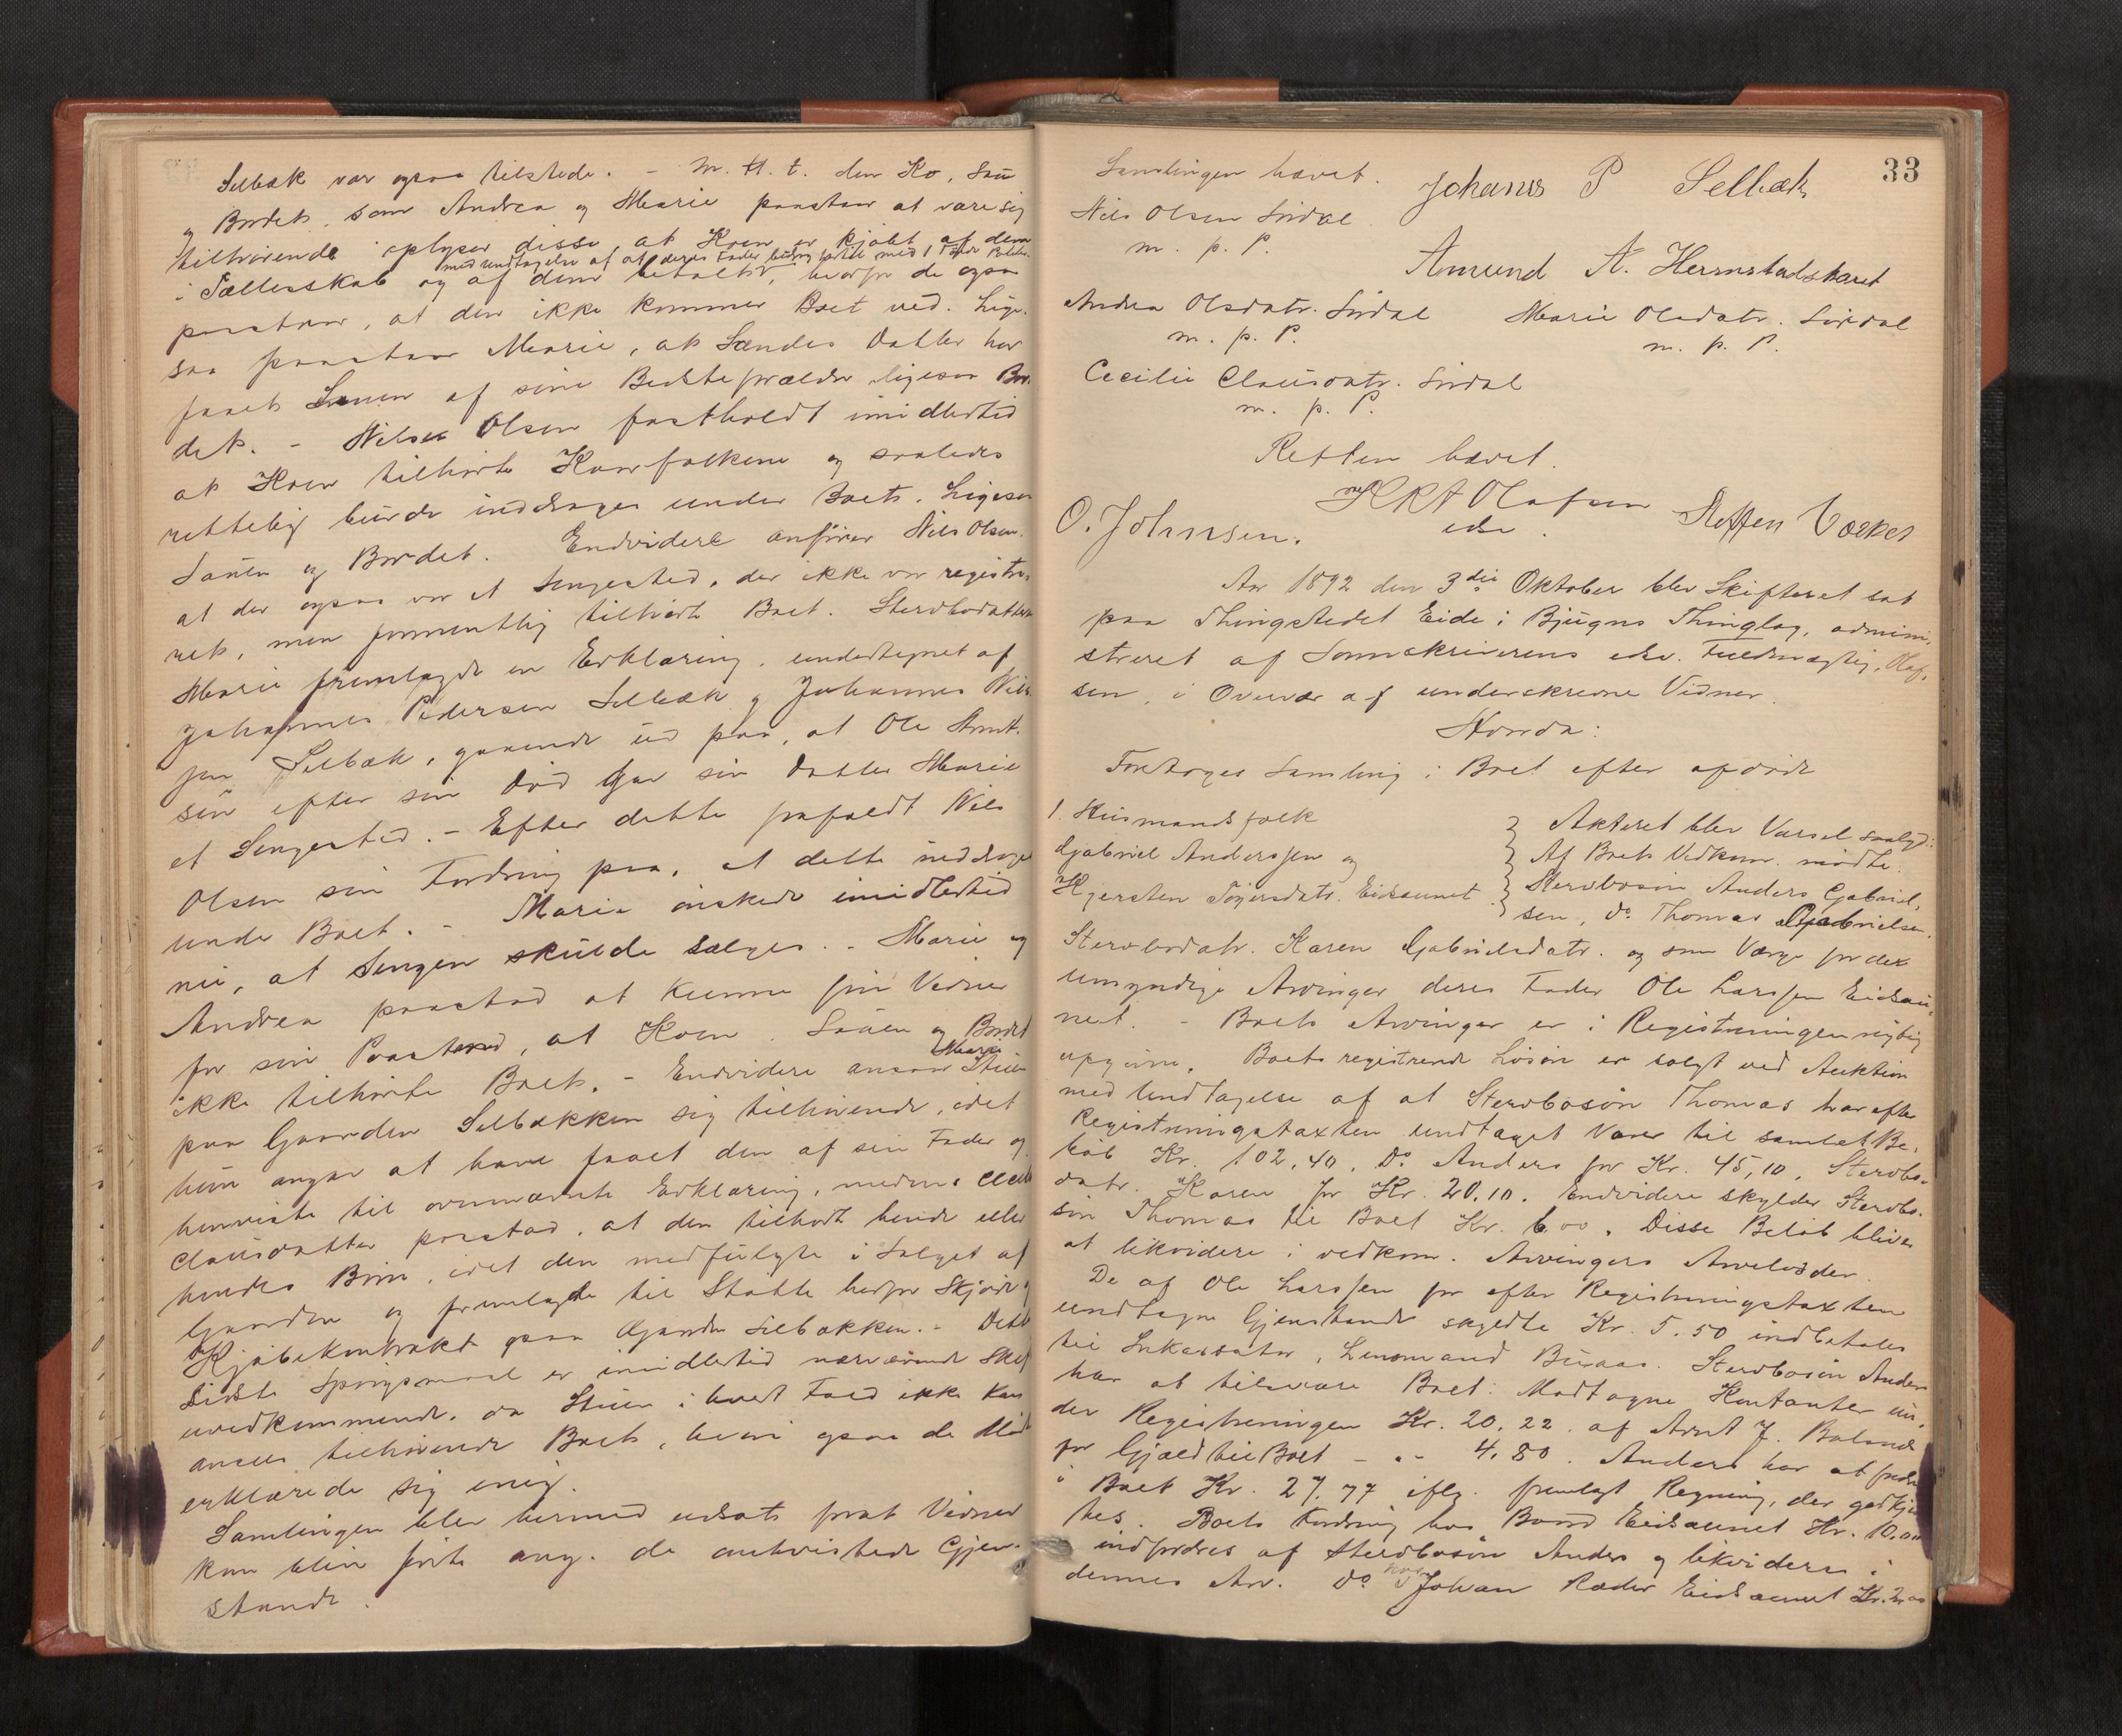 Selbæk var ogsaa tilstede. - M. H. t. den Ko, Sau
og Bordet, som Andrea og Marie paastaar at være sig
tilhørende oplyser disse, at Koen er kjøbt af dem
med undtagelse af at deres Fader bidrog hertil med 1 Tønde
i Fællesskab og af dem betalt, hvorfor de ogsaa
paastaar, at den ikke kommer Boet ved. Lige-
saa paastaar Marie, at Datter har
faaet Sauen af sine Bedsteforældre ligesaa Bor-
det. - Nils Olsen fastholdt imidlertid
at Koen tilhørte Kaarfolkene og saaledes
rettelig burde inddrages under Boet. Ligesaa
Sauen og Bordet. Endvidere anfører Nils Olsen
at der ogsaa var et Sengested, der ikke var registre-
ret, men formentlig tilhørte Boet. Stervbodatteren
Marie fremlagde en Erklæring, undertegnet af
Johannes Pedersen Selbæk og Johannes Nils-
sen Selbæk, gaaende ud paa, at Ole Arnt-
sen efter sin Død gav sin Datter Marie
et Sengested. - Efter dette frafaldt Nils
Olsen sin Fordring paa, at dette inddrages
under Boet. - Marie ønskede imidlertid
nu, at Sengen skulde sælges. - Marie og
Andrea paastod at kunne føre Vidner
for sin Paastand, at Koen, Sauen og Bordet
ikke tilhørte Boet. - Endvidere ansaa Marie Stuen
paa Gaarden Selbækken sig tilhørende, idet
hun angav at have faaet den af sin Fader og
henviste til ovennævnte Erklæring, medens Cecilie
Clausdatter paastod, at den tilhørte hende eller
hendes Børn, idet den medfulgte i Salget af
Gaarden og fremlagde til Støtte herfor Skjøde og
Kjøbekontrakt paa Gaarden Selbækken. - Dette
sidste Spørgsmaal er imidlertid nærværende Skifte
uvedkommende, da Stuen i hvert Fald ikke kan
ansees tilhørende Boet, hvori ogsaa de Mødte
erklærede sig enig.
Samlingen blev hermed udsat forat Vidner
kan blive førte ang. de omtvistede Gjen-
stande.
33
Samlingen hævet. Johanes P Selbæk
Nils Olsen Sørdal
m. p. P.
Amund A.
Andrea Olsdatr. Sørdal Marie Olsdatr. Sørdal
m. p. P. m. p. P.
Cecilie Clausdatr. Sørdal
m. p. P.
Retten hævet.
Olafsen Steffen
O. Johnsen. edv.
Aar 1892 den 3die Oktober blev Skifteret sat
paa Thingstedet Eide i Bjugns Thinglag, admini-
streret af Sorenskriverens edsv. Fuldmægtig, Olaf-
sen, i Overvær af underskrevne Vidner.
Hvorda:
Foretoges Samling i Boet efter afdøde
1. Husmandsfolk
Gabriel Anderssen og
Kjersten Eidsaunet.
Akteret blev Varsel saalyd:
Af Boets Vedkom. mødte:
Stervbosøn Anders Gabriel-
sen, do Thomas Gabrielsen,
Stervbodatr. Karen Gabrielsdatr. og som Værge for de
umyndige Arvinger deres Fader Ole Larssen Eidsau-
net. - Boets Arvinger er i Registreringen rigtig
opgivne. Boets registrerede Løsøre er solgt ved Auktion
med Undtagelse af at Stervbosøn Thomas har efter
Registreringstaxten undtaget Varer til samlet Be-
løb Kr. 102,40, Do Anders for Kr. 45,10, Stervbo-
datr. Karen for Kr. 20.10. Endvidere skylder Stervbo-
søn Thomas til Boet Kr. 6.00. Disse Beløb bliver
at likvidere i vedkom. Arvingers Arvelodder.
De af Ole Larssen for efter Registreringstaxten
undtagne Gjenstande skyldte Kr. 5.50 indbetales
til Inkassator, Lensmand Buaas. Stervbosøn Anders
har at tilsvare Boet: Modtagne Kontanter un-
der Registreringen Kr. 20.22. af Arnt J.
for Gjæld til Boet - " - 4.80. Anders har at fordre
i Boet Kr. 27.77 iflg. fremlagt Regning, der godkjen-
tes. Boets Fordring hos Eidsaunet Kr. 10.00
indfordres af Stervbosøn Anders og likvideres i
dennes Arv. Do hos Johan Eidsaunet Kr. 2.00